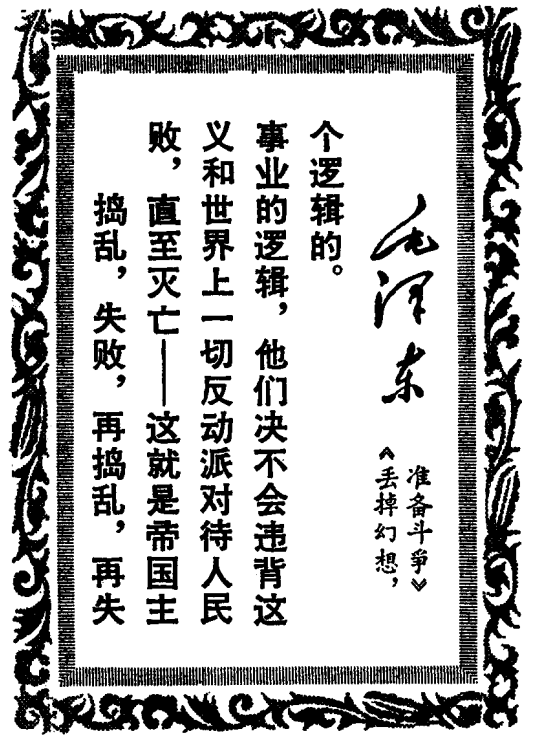 捣乱，失败，再捣乱，再失
败，直至灭亡——这就是帝国主
义和世界上一切反动派对待人民
事业的逻辑，他们决不会违背这
个逻辑的。
毛泽东
《丢掉幻想，
准备斗争》